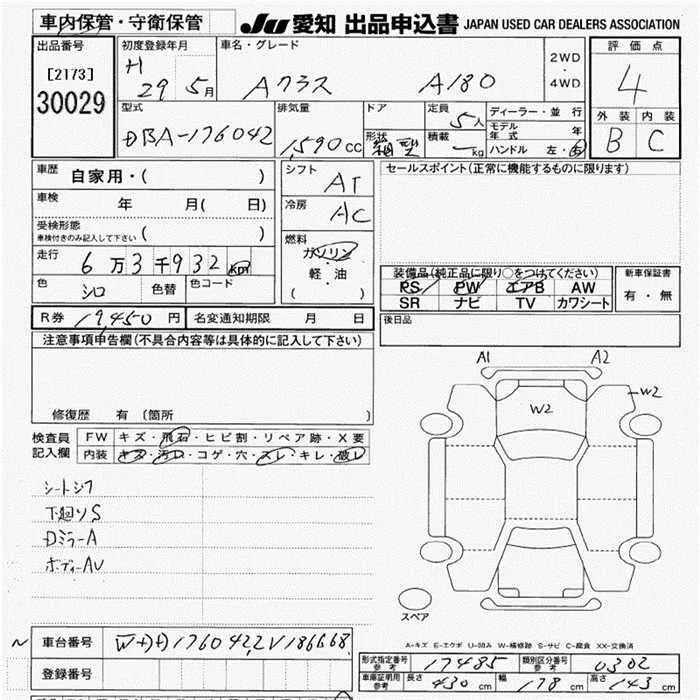 車内保管・守衛保管
JU 愛知 出品申込書 JAPAN USED CAR DEALERS ASSOCIATION
出品番号
[2173]
30029
初度登録年月
H
29 5月
車名・グレード
Aクラス A180
2WD
・
4WD
評価点
4
外装 内装
B C
型式
DBA-176042
排気量
1,590cc
ドア
形状
定員
5人
積載
-kg
ディーラー・並行
モデル年式 年
ハンドル 左・右
車歴
自家用・( )
車検
年 月( 日)
受検形態
車検付きのみ記入して下さい ( )
走行
6万3千932 km
色
シロ
色替
色コード
シフト
AT
冷房
AC
燃料
ガソリン
・
軽・油
( )
セールスポイント(正常に機能するものに限ります)
装備品(純正品に限り○をつけてください)
PS PW エアB AW
SR ナビ TV カワシート
新車保証書
有・無
R券 19,450円
名変通知期限 月 日
後日品
注意事項申告欄(不具合内容等は具体的に記入して下さい)
修復歴 有〔箇所 〕
検査員記入欄
FW キズ・飛石・ヒビ割・リペア跡・X要
内装 キズ・汚レ・コゲ・穴・スレ・キレ・破レ
シートシワ
下廻りS
DミラーA
ボディーAU
A1 A2
W2
W2
スペア
A-キズ E-エクボ U-凹み W-補修跡 S-サビ C-腐食 XX-交換済
車台番号
登録番号
形式指定番号
参考
17485
類別区分番号
参考
0302
車庫証明用
参考
長さ 430 cm 幅 178 cm 高さ 143 cm